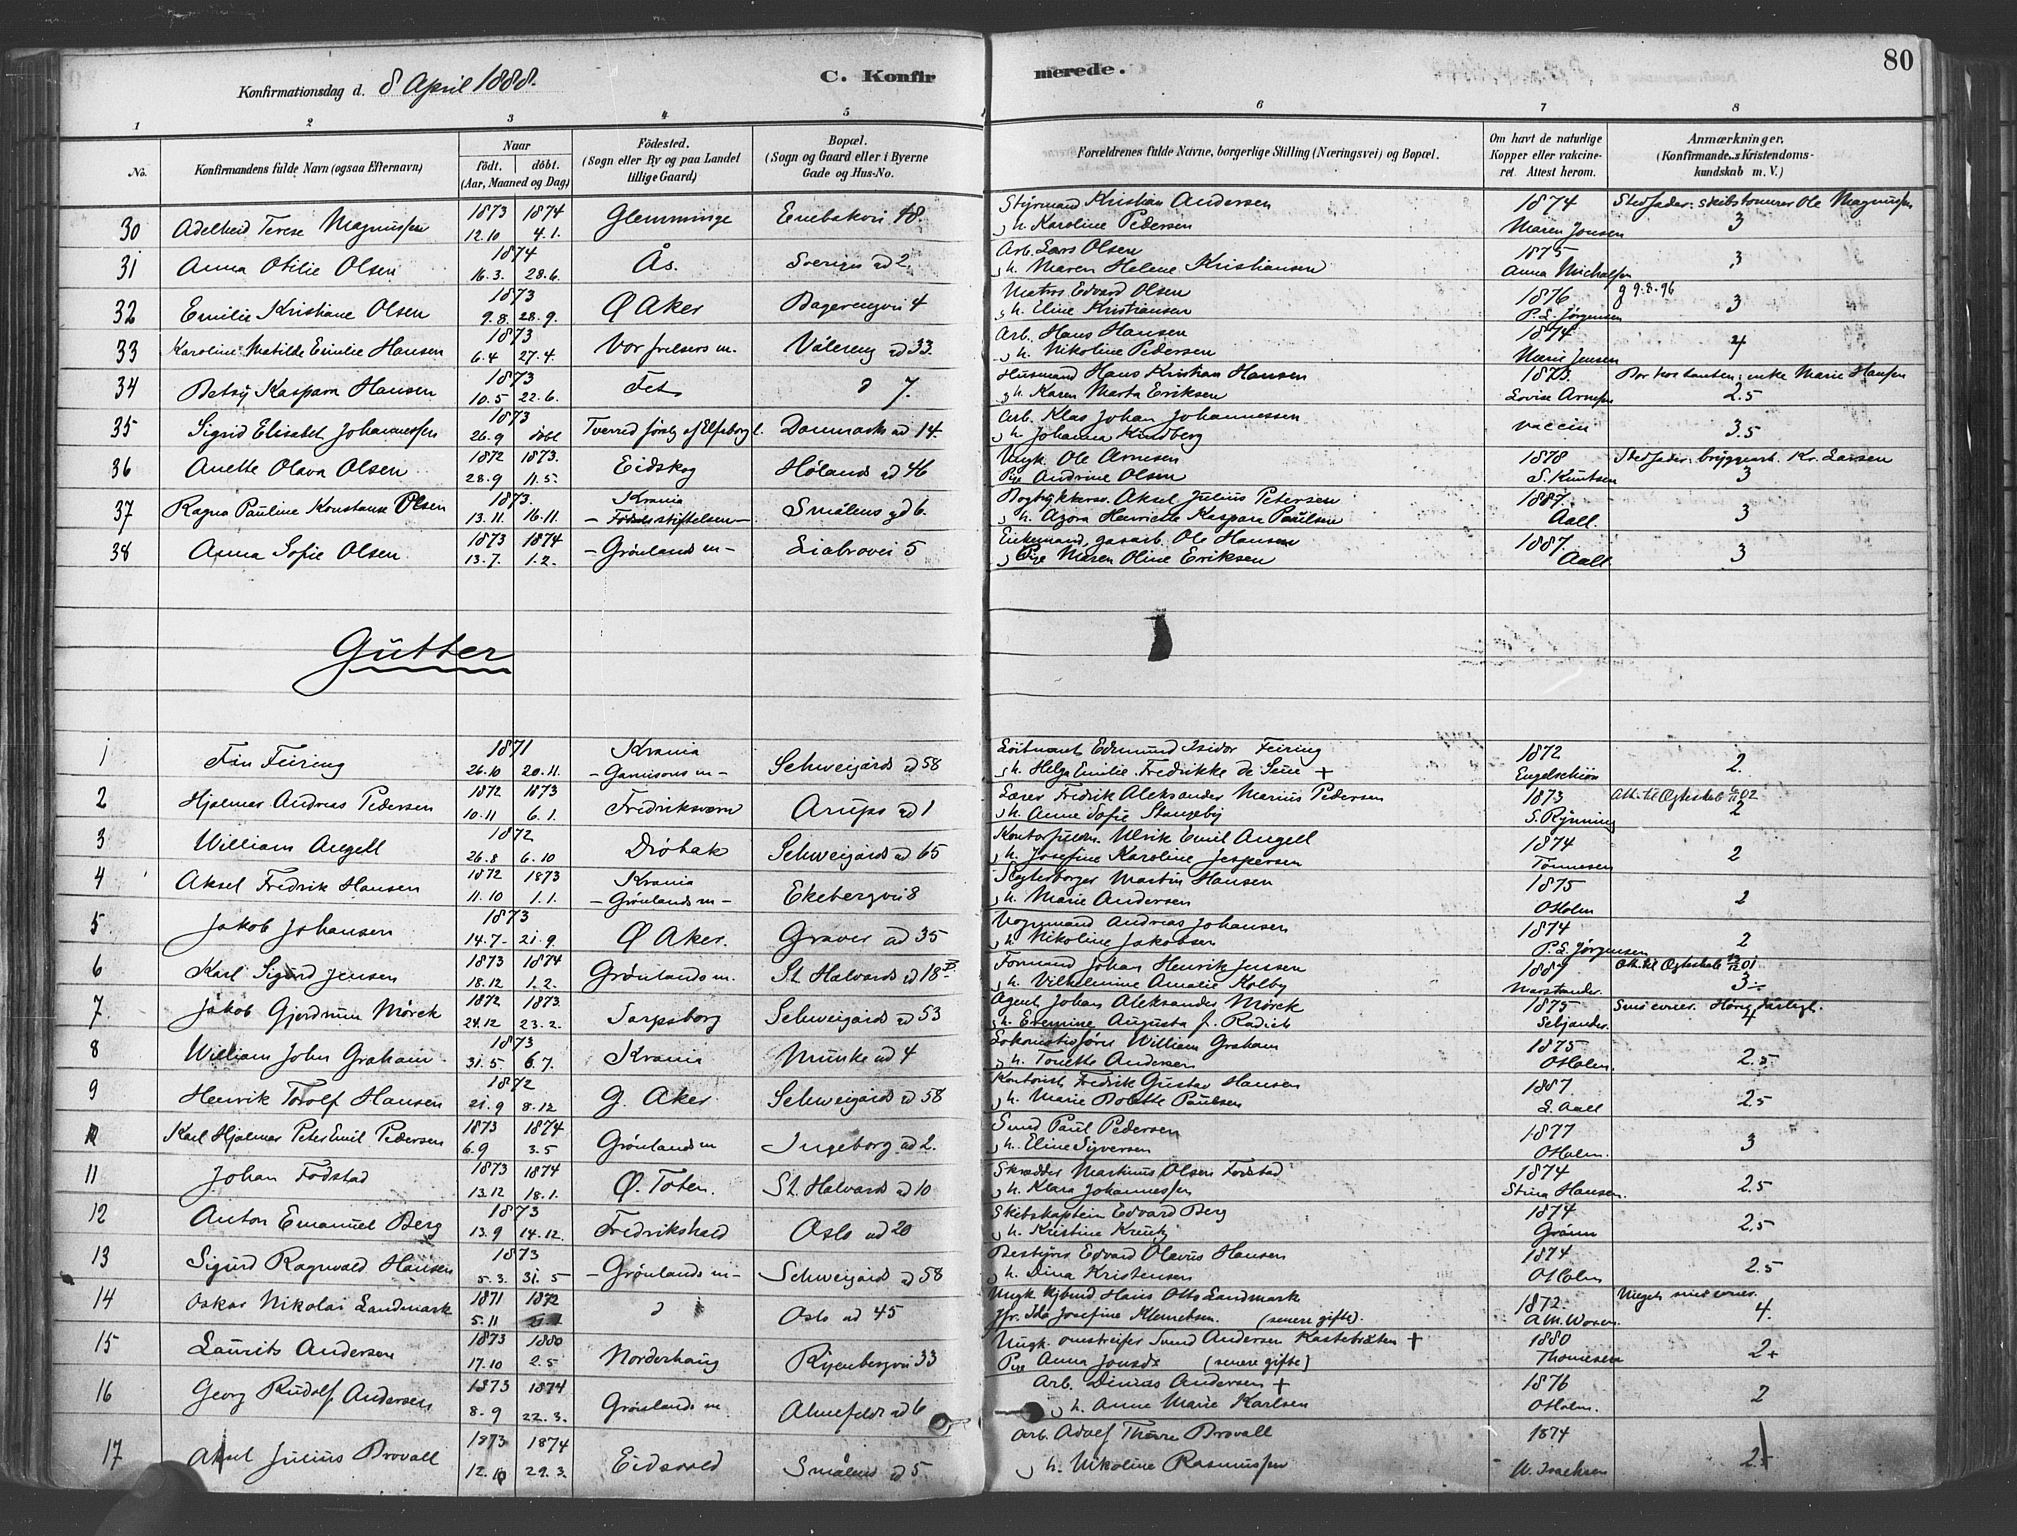 80
Konfirmationsdag d. 8 April 1888.
C. Konfirmerede.
1 2 3 4 5 6 7 8
No.
Konfirmandens fulde Navn (ogsaa Efternavn)
Naar
födt. döbt.
(Aar, Maaned og Dag)
Födested.
(Sogn eller By og paa Landet
tillige Gaard)
Bopæl.
(Sogn og Gaard eller i Byerne
Gade og Hus-No.
Forældrenes fulde Navne, borgerlige Stilling (Næringsvei) og Bopæl.
Om havt de naturlige
Kopper eller vakcine-
ret Attest herom.
Anmærkninger,
(Konfirmandens Kristendoms-
kundskab m. V.)
30 Adelheid Terese Magnussen 1873 12.10 1874 4.1. Glemminge Enebakvei 48. Styrmand Kristian Andersen 1874 Stedfader: skibstømrer Ole Magnussen
h. Karoline Pedersen Maren Jensen 3
31 Anna Otilie Olsen 1874 16.3. 28.6. Ås. Sveriges gd 2. Arb. Lars Olsen 1875
h. Maren Helene Kristiansen Anna Michelsen 3
32 Emilie Kristiane Olsen 1873 9.8. 28.9. Ø Aker Dagerengvei 4 Matros Edvard Olsen 1876 g 9.8.96
h. Eline Kristiansen P.L. Jørgensen 3
33 Karoline Matilde Emilie Hansen 1873 6.4 27.4. Vor frelsers m. Vålereng gd 33. Arb. Hans Hansen 1874
h. Nikoline Pedersen Marie Jensen 4
34 Betsy Kaspara Hansen 1873 10.5 22.6. Fet 7. Husmand Hans Kristian Hansen 1873. Bor hos tanten: enke Marie Hansen
h. Karen Marta Eriksen Lovise Arnesen 2.5
35 Sigrid Elisabet Johannessen 1873 26.9 døbt Tverred forsly af Elfsborg l. Danmarks gd 14. Arb. Klas Johan Johannessen vaccin
h. Johanna Kindberg 3.5
36 Anette Olava Olsen 1872 28.9 1873. 11.5. Eidskog Hølands gd 46 Ungk. Ole Arnesen 1878 Stedfader: bryggearb. Kr. Larsen
Pige Andrine Olsen S. Knutsen 3
37 Ragna Pauline Konstanse Olsen 1873. 13.11. 16.11. Krania Fødselsstiftelsen Smålens gd 6. Bogtrykkersv. Aksel Julius Petersen 1887.
h. Azora Henriette Kaspara Paulsen Aall. 3
38 Anna Sofie Olsen 1873 13.7. 1874 1.2. Grønlands m Liabrovei 5 Enkemand, gasarb. Ole Hansen 1887.
Pige Maren Oline Eriksen Aall 3
Gutter
1 Fin Feiring 1871 26.10 20.11. Krania Garnisons m Schweigårds gd 58 Løitnant Edmund Isidor Feiring 1872
h. Helga Emilie Fredrikke de Seue + Engelschiøn 2.
2 Hjalmar Andreas Pedersen 1872 10.11 1873 6.1. Fredriksværn Arups gd 1 Lærer Fredrik Aleksander Marius Pedersen 1873 Att. til Ægteskab 02
h. Anne Sofie Stangeby S. Rynning 2
3 William Angell 1872 26.8 6.10 Drøbak Schweigårds gd 65 Kontorfuldm. Ulrik Emil Angell 1874
h. Josefine Karoline Jespersen Tønnesen 2
4 Aksel Fredrik Hansen 1872 11.10 1873 1.1. Krania Grønlands m Ekebergvei 8 Slagterborger Martin Hansen 1875
h. Marie Andersen O Holm 2
5 Jakob Johansen 1873 14.7 21.9. Ø Aker. Graver gd 35 Vognmand Andreas Johansen 1874
h. Nikoline Jakobsen P.L. Jørgensen 2
6 Karl Sigurd Jensen 1873 18.12 1874 1.2. Grønlands m. St. Halvards gd 18 Formand Johan Henrik Jensen 1887 Att. til Ægteskab 01
h. Vilhelmine Amalie Kolby Marstrander. 3÷
7 Jakob Gjerdrum Mørck 1872 24.12 1873. 23.2. Sarpsborg Schweigårds gd 53 Agent Johan Aleksander Mørck 1875
h. Evemine Augusta f. Radich Schjander. 4
8 William John Graham 1873 31.5 6.7. Krania Munke gd 4 Lokomotivfører William Graham 1875
h. Tonette Andersen O Holm. 2.5
9 Henrik Torolf Hansen 1872 21.9 8.12 G. Aker Schweigårds gd 58 Kontorist Fredrik Gustav Hansen 1887
h. Marie Bolette Paulsen L. Aall 2.5
10 Karl Hjalmar Peter Emil Pedersen 1873 6.9 1874 3.5 Grønlands m Ingeborg gd 2. Smed Paul Pedersen 1877
h. Eline Syversen O Holm. 3
11 Johan Fodstad 1873 13.12 1874 18.1. Ø. Toten. St. Halvards gd 10 Skrædder Martinus Olsen Fodstad 1874
h. Klara Johannessen Stina Hansen. 2.5
12 Anton Emanuel Berg 1873 13.9 14.12. Fredrikshald Oslo gd 20 Skibskaptein Edvard Berg 1874
h. Kristine Kreutz Grønn 2.5
13 Sigurd Ragnvald Hansen 1873 5.3. 31.5 Grønlands m Schweigårds gd 58 Bestyrer Edvard Olavus Hansen 1874
h. Dina Kristensen O Holm 2.5
14 Oskar Nikolai Landmark 1871 5.11 1872 Oslo gd 45 Ungk. Hans Otto Landmark 1872.
Jfr. Ida Josefine Klemetsen. (senere gifte). 4.
15 Laurits Andersen 1873 17.10 1880 2.5 Norderhaug Ryenbergvei 33 Ungk. omstreifer Smed Andersen Kastebråten + 1880
Pige Anna Jonsd. (senere gifte) Thomesen 2+
16 Georg Rudolf Andersen 1873 8.9 1874 22.3. Grønlands m Ahnefeldt gd 6 Arb. Dinias Andersen + 1876
h. Anne Marie Karlsen O Holm. 2
17 Aksel Julius Brovall 1873 12.10 1874 29.3. Eidsvold Smålens gd 5. Arb. Adolf Thure Brovall 1874
h. Nikoline Rasmussen W. Isachsen 2